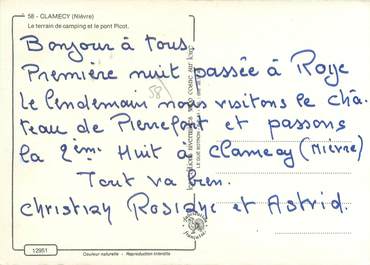 58 - CLAMECY (Nièvre)
Le terrain de camping et le pont Picot.
Bonjour à tous
Première nuit passée à Roye
58
le lendemain nous visitons le châ-
teau de Pierrefont et passons
la 2ème Nuit à Clamecy (Nièvre)
Tout va bien.
Christian Rosiane et Astrid.
12951
Couleur naturelle - Reproduction interdite